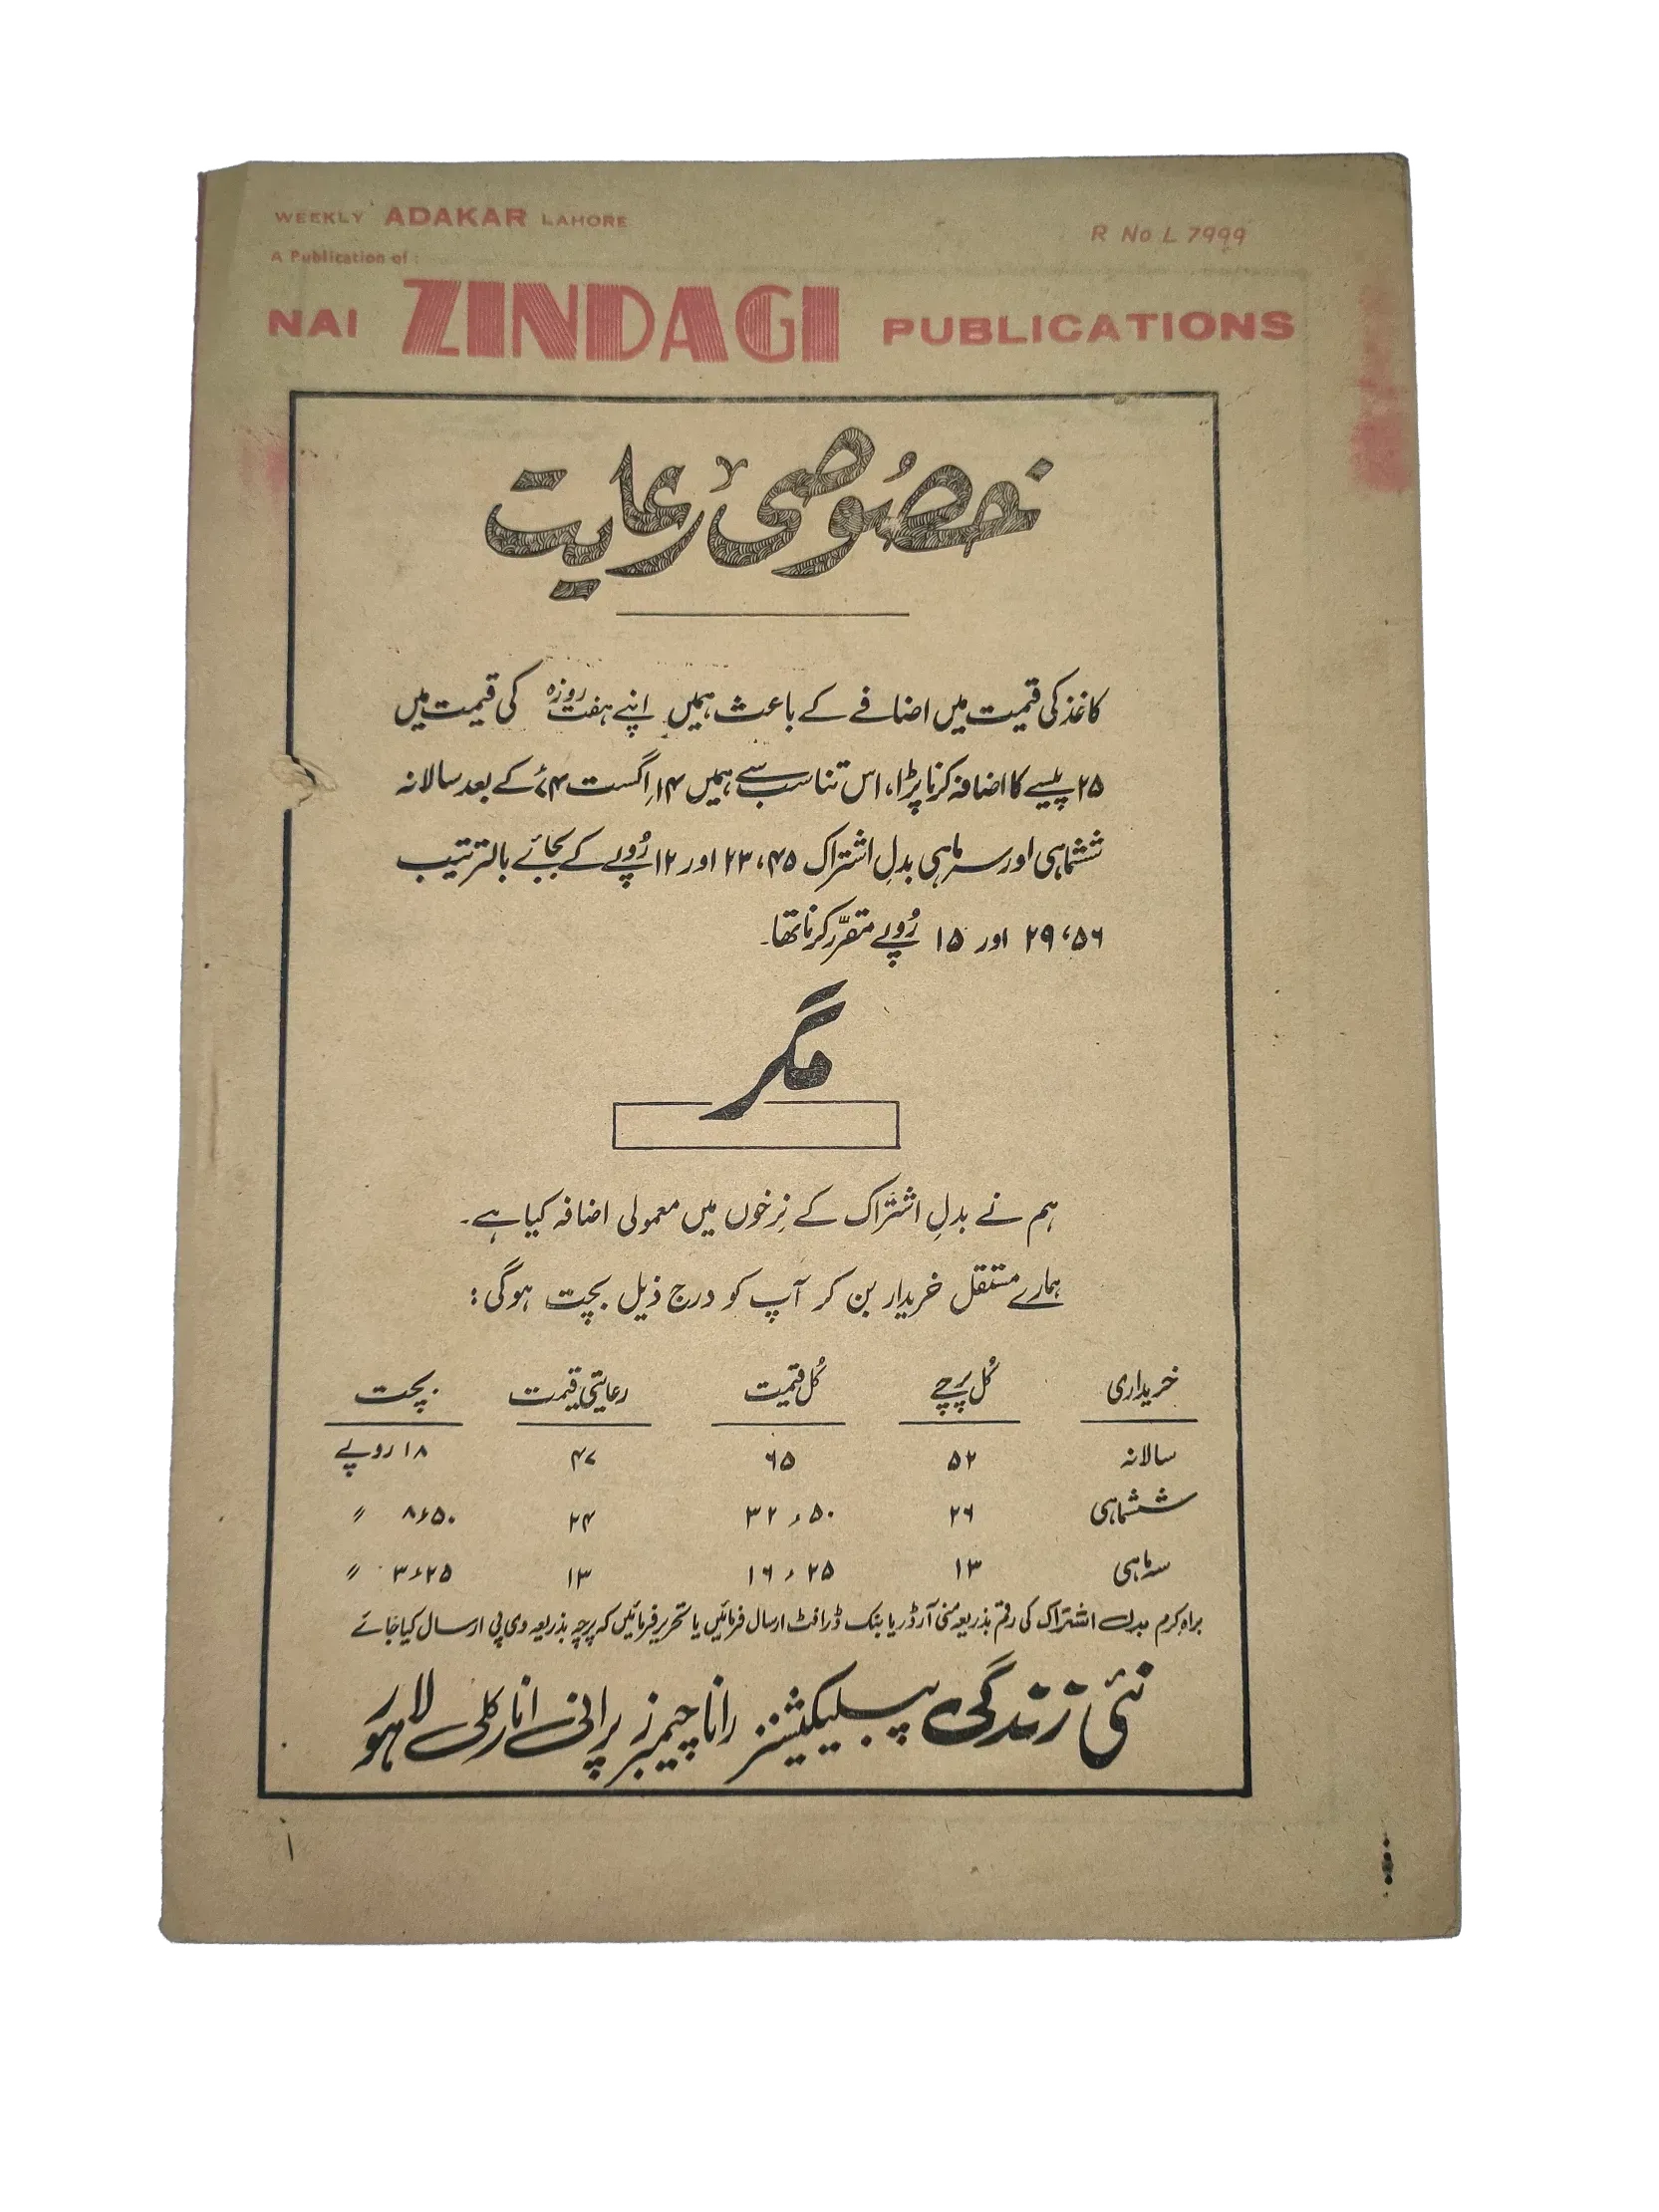 WEEKLY ADAKAR LAHORE
R No L 7999
A Publication of :
NAI ZINDAGI PUBLICATIONS
خصوصی رعایت
کاغذ کی قیمت میں اضافے کے باعث ہمیں اپنے ہفت روزہ کی قیمت میں
۲۵ پیسے کا اضافہ کرنا پڑا، اس تناسب سے ہمیں ۱۴ اگست ۷۴ء کے بعد سالانہ
ششماہی اور سہ ماہی بدلِ اشتراک ۴۵، ۲۳ اور ۱۲ رُوپے کے بجائے بالترتیب
۵۶، ۲۹ اور ۱۵ رُوپے مقرّر کرنا تھا۔
مگر
ہم نے بدلِ اشتراک کے نِرخوں میں معمولی اضافہ کیا ہے۔
ہمارے مستقل خریدار بن کر آپ کو درج ذیل بچت ہوگی:
خریداری کُل پرچے کُل قیمت رعایتی قیمت بچت
سالانہ ۵۲ ۶۵ ۴۷ ۱۸ روپے
ششماہی ۲۶ ۳۲٫۵۰ ۲۴ ۸٫۵۰ 〃
سہ ماہی ۱۳ ۱۶٫۲۵ ۱۳ ۳٫۲۵ 〃
براہِ کرم بدلِ اشتراک کی رقم بذریعہ منی آرڈر یا بنک ڈرافٹ ارسال فرمائیں یا تحریر فرمائیں کہ پرچہ بذریعہ وی پی ارسال کیا جائے
نئی زندگی پبلیکیشنز رانا چیمبرز پرانی انارکلی لاہور
۱